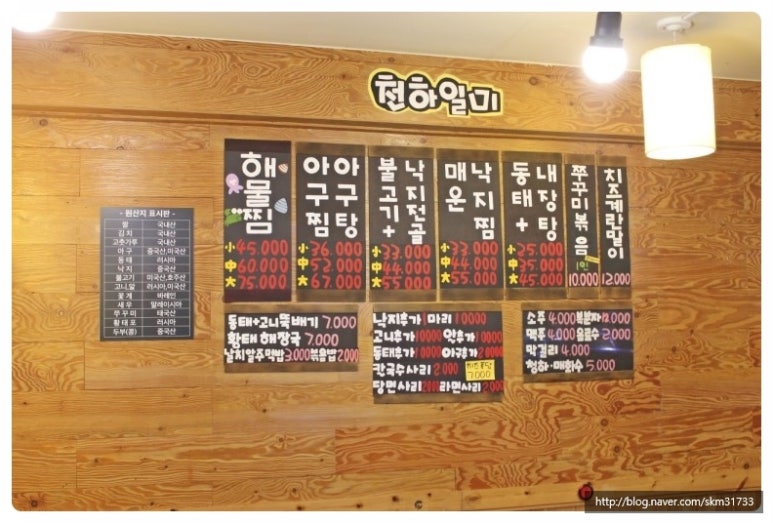 천하일미
- 원산지 표시판 -
쌀 국내산
김치 국내산
고춧가루 국내산
아구 중국산,미국산
동태 러시아
낙지 중국산
불고기 미국산,호주산
고니,알 러시아,미국산
꽃게 바레인
새우 말레이시아
쭈꾸미 태국산
황태포 러시아
두부(콩) 중국산
해물찜
小 45.000
中 60.000
大 75.000
아구찜 아구탕
小 36.000
中 52.000
大 67.000
불고기+ 낙지전골
小 33.000
中 44.000
大 55.000
매운 낙지찜
小 33.000
中 44.000
大 55.000
동태+ 내장탕
小 25.000
中 35.000
大 45.000
쭈꾸미볶음
1인
10.000
치즈계란말이
12.000
동태+고니뚝배기 7.000
황태 해장국 7.000
날치알주먹밥 3.000 볶음밥 2000
낙지추가 1마리 10000
고니추가 10000 알추가 10000
동태추가 10000 아귀추가 20000
칼국수사리 2000
7.000
당면사리 2000 라면사리 2000
소주 4.000 복분자 12.000
맥주 4.000 음료수 2.000
막걸리 4.000
청하·매화수 5.000
http://blog.naver.com/skm31733